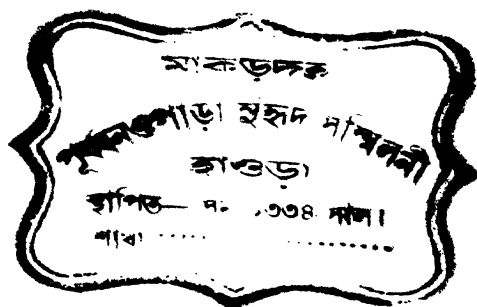 মাকড়দহ
পূর্ব্বান্নপাড়া সুহৃদ সম্মিলনী
হাওড়া
স্থাপিত— সং ১৩৩৪ সাল।
শাখা ..... ..........